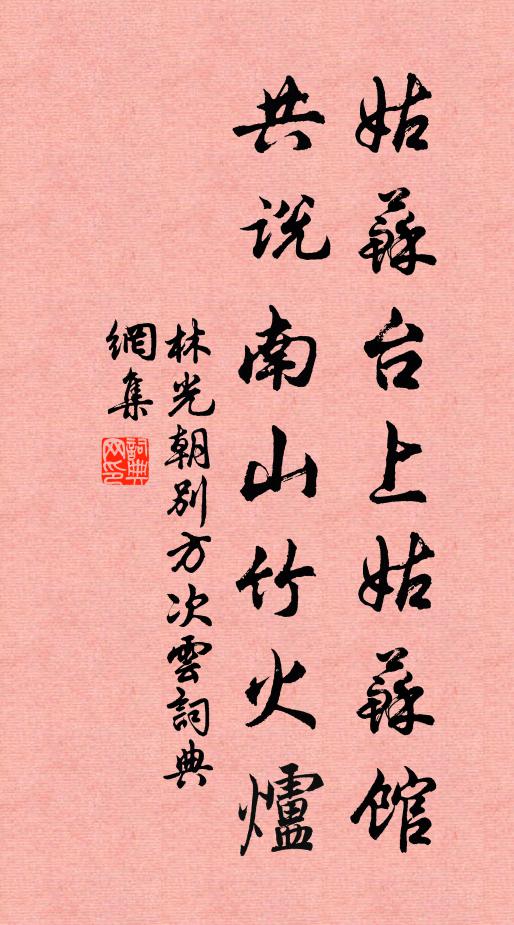 姑蘇台上姑蘇館
共説南山竹火爐
林光朝别方次雲詞典
網集
詞典網印